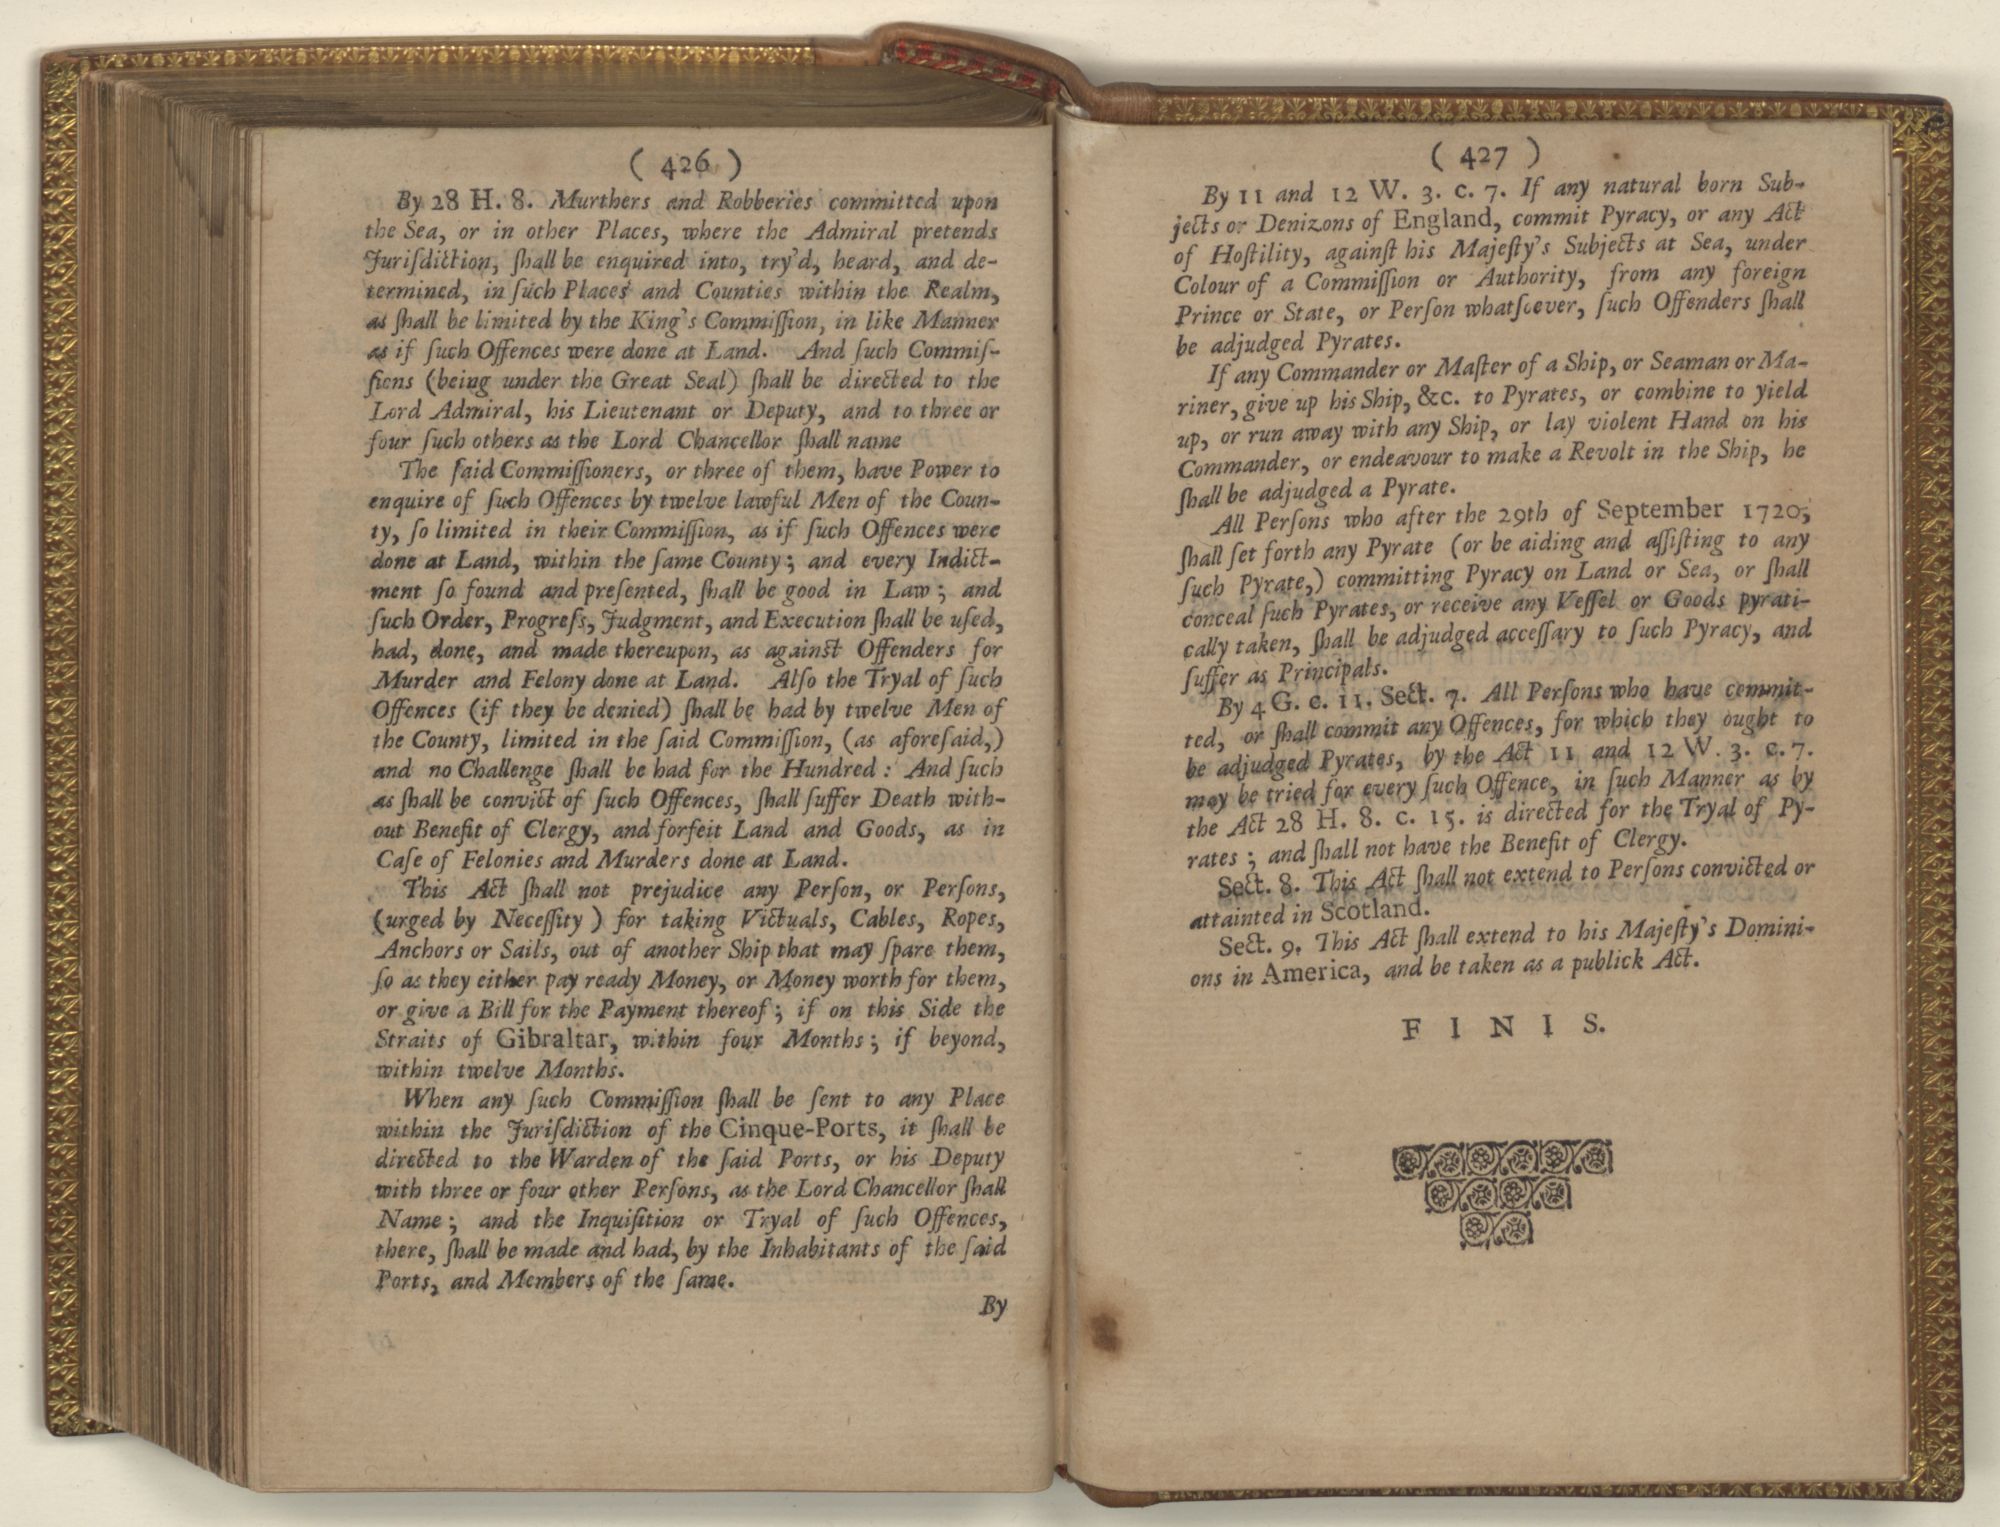 ( 426 )
By 28 H. 8. Murthers and Robberies committed upon
the Sea, or in other Places, where the Admiral pretends
Juriſdiction, ſhall be enquired into, try'd, heard, and de-
termined, in ſuch Places and Counties within the Realm,
as ſhall be limited by the King's Commiſſion, in like Manner
as if ſuch Offences were done at Land. And ſuch Commiſ-
ſions (being under the Great Seal) ſhall be directed to the
Lord Admiral, his Lieutenant or Deputy, and to three or
four ſuch others as the Lord Chancellor ſhall name
The ſaid Commiſſioners, or three of them, have Power to
enquire of ſuch Offences by twelve lawful Men of the Coun-
ty, ſo limited in their Commiſſion, as if ſuch Offences were
done at Land, within the ſame County; and every Indict-
ment ſo found and preſented, ſhall be good in Law; and
ſuch Order, Progreſs, Judgment, and Execution ſhall be uſed,
had, done, and made thereupon, as against Offenders for
Murder and Felony done at Land. Alſo the Tryal of ſuch
Offences (if they be denied) ſhall be had by twelve Men of
the County, limited in the ſaid Commiſſion, (as aforeſaid,)
and no Challenge ſhall be had for the Hundred: And ſuch
as ſhall be convict of ſuch Offences, ſhall ſuffer Death with-
out Benefit of Clergy, and forfeit Land and Goods, as in
Caſe of Felonies and Murders done at Land.
This Act ſhall not prejudice any Perſon, or Perſons,
(urged by Neceſſity) for taking Victuals, Cables, Ropes,
Anchors or Sails, out of another Ship that may ſpare them,
ſo as they either pay ready Money, or Money worth for them,
or give a Bill for the Payment thereof; if on this Side the
Straits of Gibraltar, within four Months; if beyond,
within twelve Months.
When any ſuch Commiſſion ſhall be ſent to any Place
within the Juriſdiction of the Cinque-Ports, it ſhall be
directed to the Warden of the ſaid Ports, or his Deputy
with three or four other Perſons, as the Lord Chancellor ſhall
Name; and the Inquiſition or Tryal of ſuch Offences,
there, ſhall be made and had, by the Inhabitants of the ſaid
Ports, and Members of the ſame.
By
( 427 )
By 11 and 12 W. 3. c. 7. If any natural born Sub-
jects or Denizons of England, commit Pyracy, or any Act
of Hoſtility, againſt his Majeſty's Subjects at Sea, under
Colour of a Commiſſion or Authority, from any foreign
Prince or State, or Perſon whatſoever, ſuch Offenders ſhall
be adjudged Pyrates.
If any Commander or Maſter of a Ship, or Seaman or Ma-
riner, give up his Ship, &c. to Pyrates, or combine to yield
up, or run away with any Ship, or lay violent Hand on his
Commander, or endeavour to make a Revolt in the Ship, he
ſhall be adjudged a Pyrate.
All Perſons who after the 29th of September 1720,
ſhall ſet forth any Pyrate (or be aiding and aſſiſting to any
ſuch Pyrate,) committing Pyracy on Land or Sea, or ſhall
conceal ſuch Pyrates, or receive any Veſſel or Goods pyrati-
cally taken, ſhall be adjudged acceſſary to ſuch Pyracy, and
ſuffer as Principals.
By 4 G. c. 11. Sect. 7. All Perſons who have commit-
ted, or ſhall commit any Offences, for which they ought to
be adjudged Pyrates, by the Act 11 and 12 W. 3. c. 7.
may be tried for every ſuch Offence, in ſuch Manner as by
the Act 28 H. 8. c. 15. is directed for the Tryal of Py-
rates; and ſhall not have the Benefit of Clergy.
Sect. 8. This Act ſhall not extend to Perſons convicted or
attainted in Scotland.
Sect. 9. This Act ſhall extend to his Majeſty's Domini-
ons in America, and be taken as a publick Act.
FINIS.